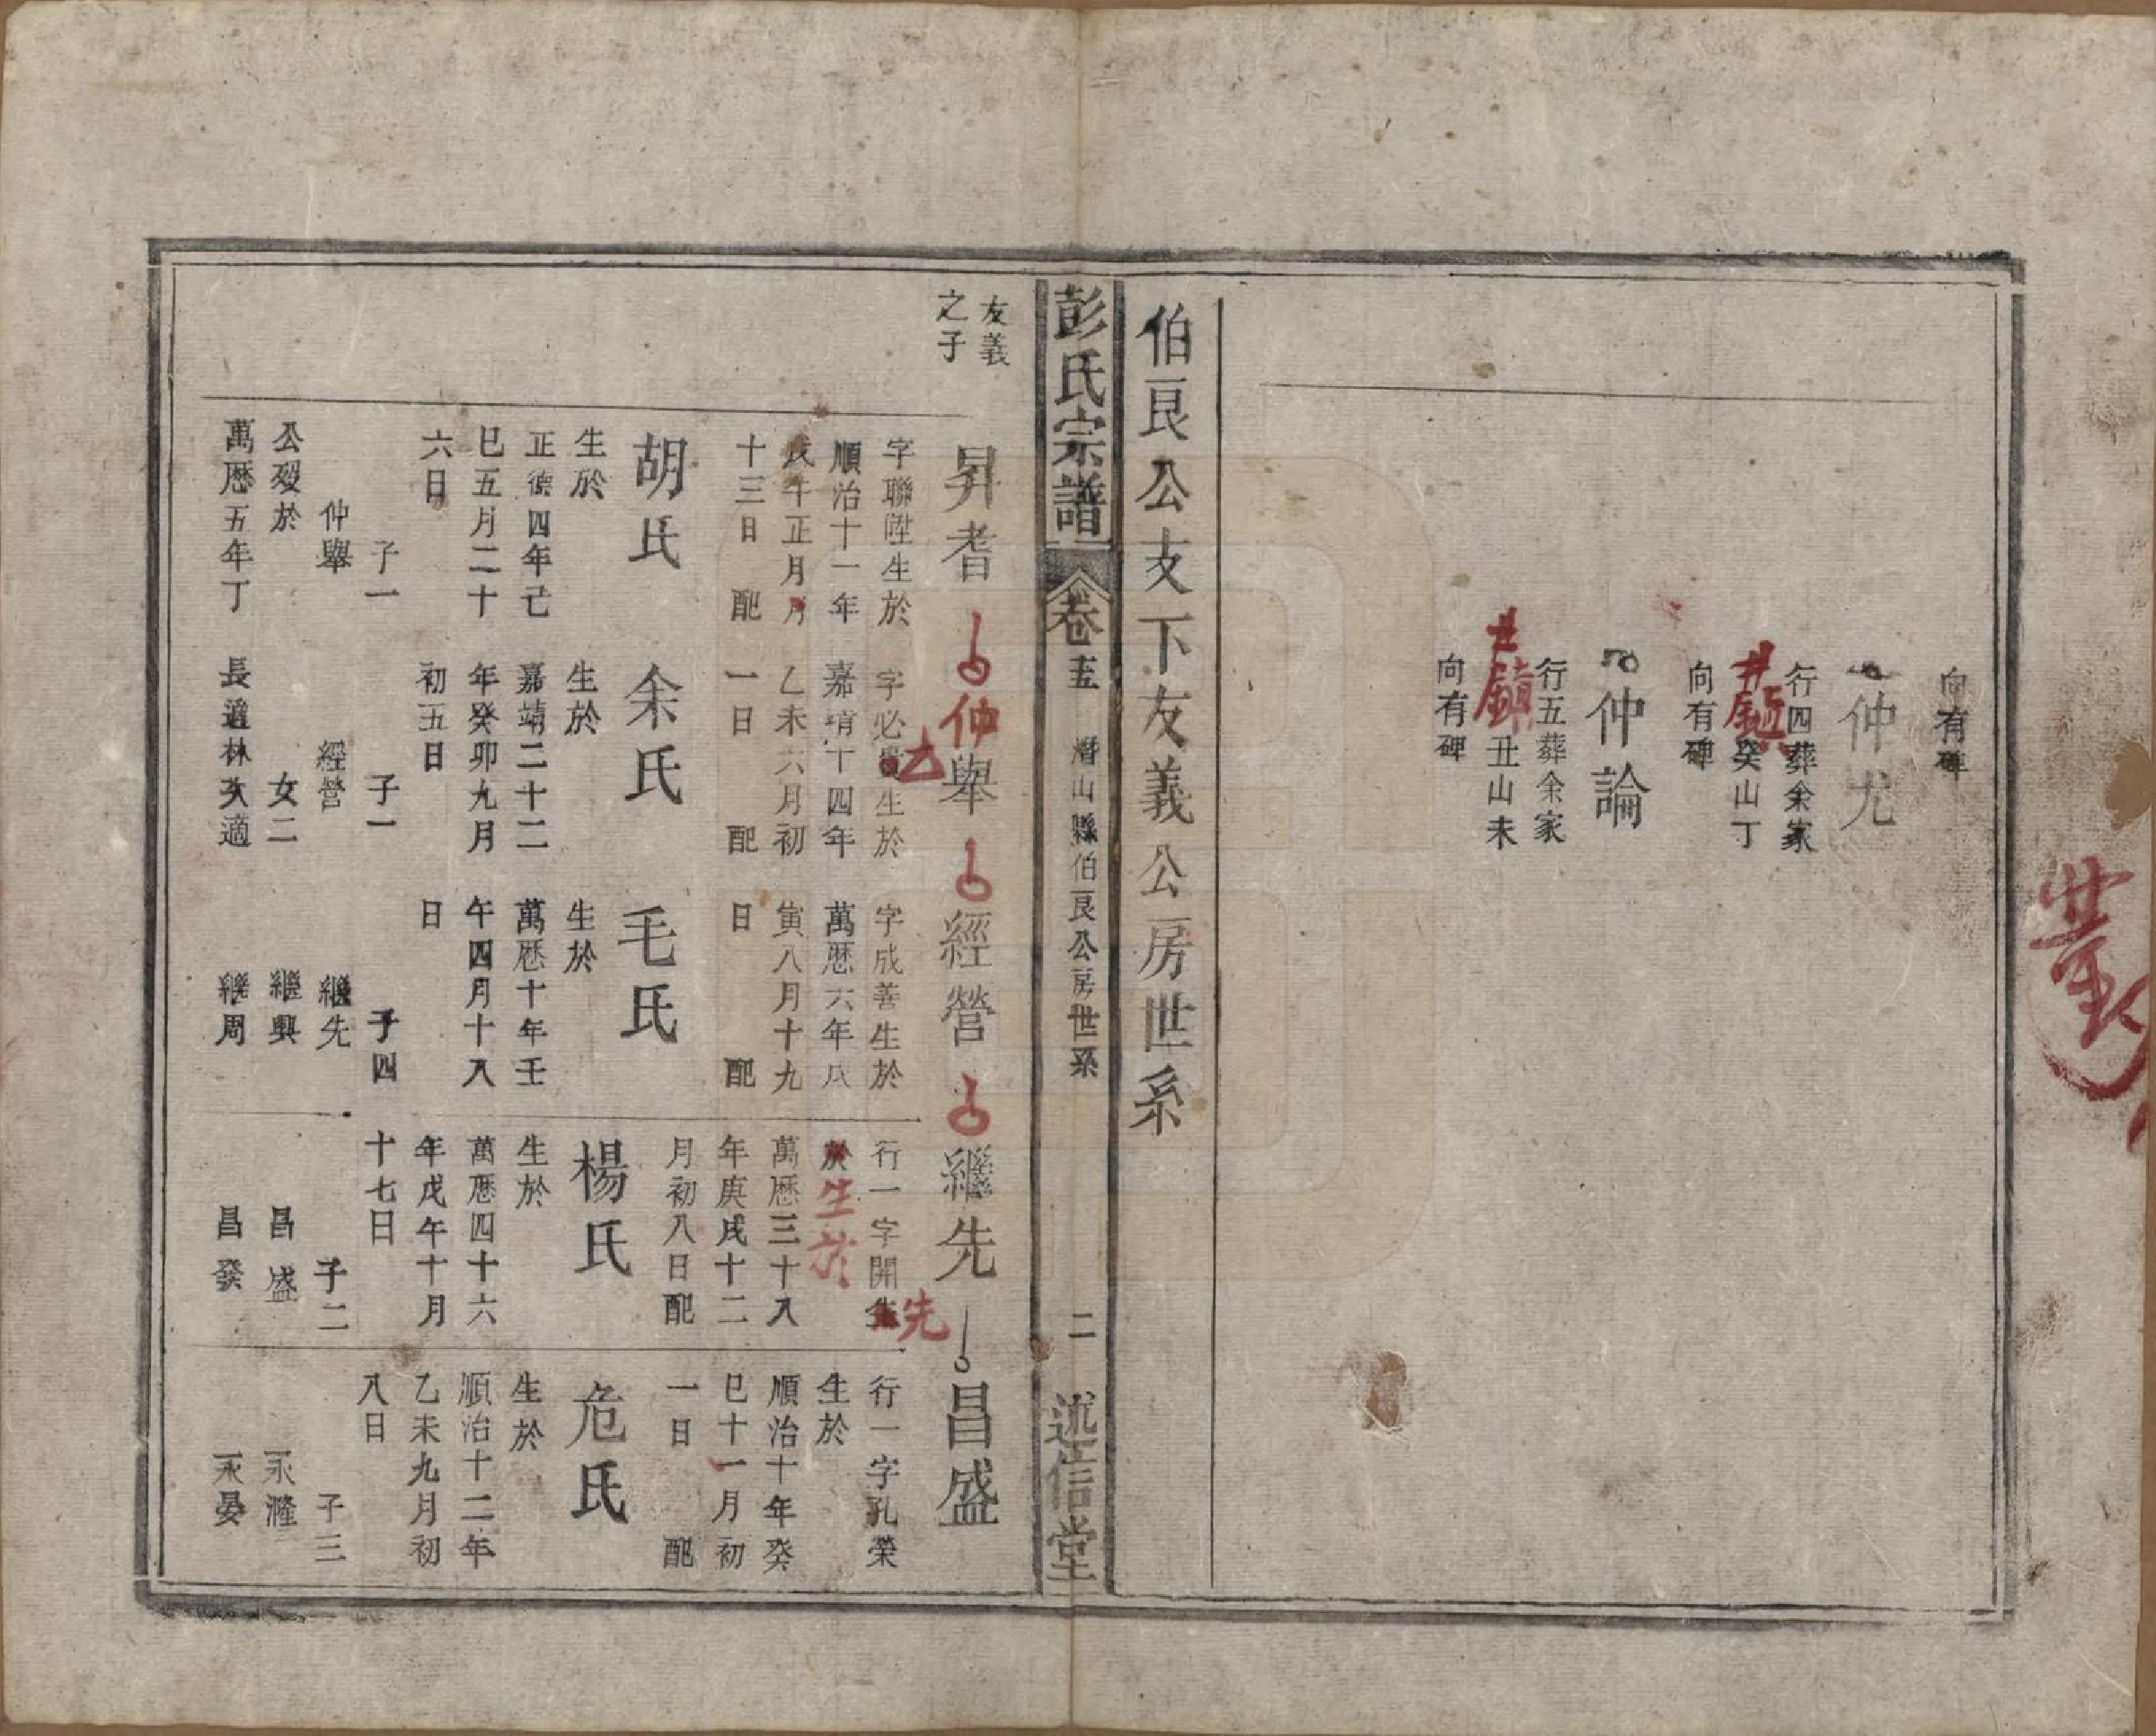 向有碑
仲尤
行四葬余家
癸山丁
向有碑
仲論
行五葬余家
丑山未
向有碑
伯艮公支下友義公房世系
彭氏宗譜
卷五
灊山縣伯艮公房世系
二
述信堂
友義
之子
昇耆
字聯陞生於
順治十一年
戊午正月
十三日 配
胡氏
生於
正德四年己
巳五月二十
六日
子一
仲舉
公歿於
萬厯五年丁
仲舉
字必貴生於
嘉靖十四年
乙未六月初
一日 配
余氏
生於
嘉靖二十二
年癸卯九月
初五日
子一
經營
女二
長適林次適
經營
字成善生於
萬厯六年戊
寅八月十九
日 配
毛氏
生於
萬厯十年壬
午四月十八
日
子四
繼先
繼興
繼周
繼先
行一字開先
生於
萬厯三十八
年庚戌十二
月初八日配
楊氏
生於
萬厯四十六
年戊午十月
十七日
子二
昌盛
昌發
昌盛
行一字孔榮
生於
順治十年癸
巳十一月初
一日 配
危氏
生於
順治十二年
乙未九月初
八日
子三
永漋
永晏